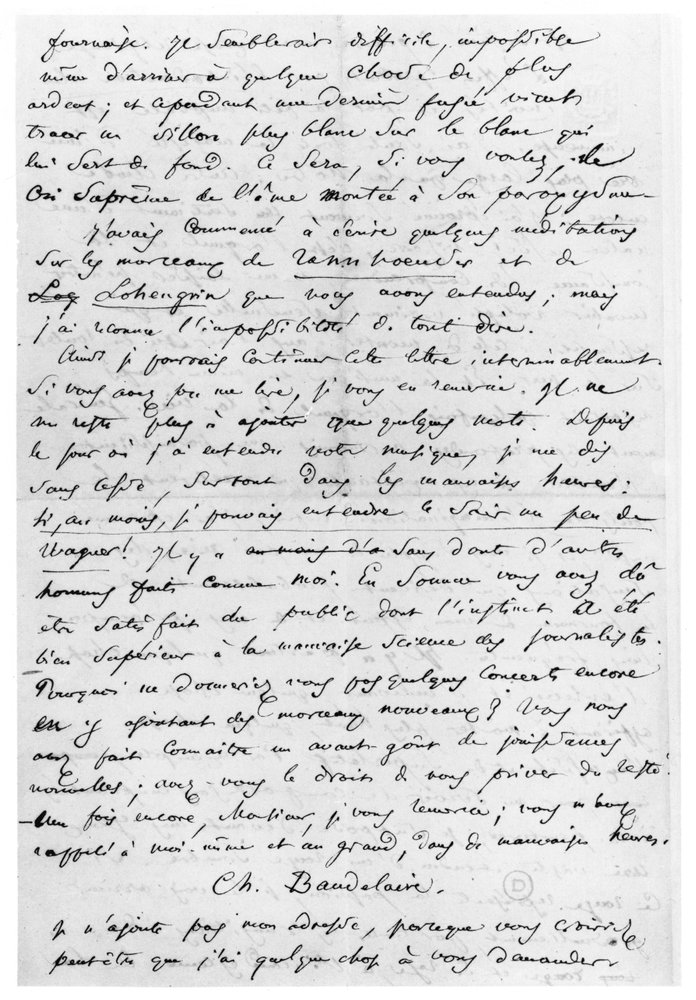 fournaise. Il semblerait difficile, impossible
même d'arriver à quelque chose de plus
ardent ; et cependant une dernière fusée vient
tracer un sillon plus blanc sur le blanc qui
lui sert de fond. Ce sera, si vous voulez, le
cri suprême de l'âme montée à son paroxysme.
J'avais commencé à écrire quelques méditations
sur les morceaux de Tannhoeuser et de
Loe Lohengrin que nous avons entendus ; mais
j'ai reconnu l'impossibilité de tout dire.
Ainsi je pourrais continuer cette lettre interminablement.
Si vous avez pu me lire, je vous en remercie. Il ne
me reste plus à ajouter que quelques mots. Depuis
le jour où j'ai entendu votre musique, je me dis
sans cesse, surtout dans les mauvaises heures :
Si, au moins, je pouvais entendre ce soir un peu de
Wagner ! Il y a sans doute d'autres
hommes faits comme moi. En somme vous avez dû
être satisfait du public dont l'instinct a été
bien supérieur à la mauvaise science des journalistes.
Pourquoi ne donneriez vous pas quelques concerts encore
en y ajoutant des morceaux nouveaux ? Vous nous
avez fait connaître un avant-goût de jouissances
nouvelles ; avez-vous le droit de nous priver du reste ?
— Une fois encore, Monsieur, je vous remercie ; vous m'avez
rappelé à moi-même et au grand, dans de mauvaises heures.
Ch. Baudelaire.
D
Je n'ajoute pas mon adresse, parceque vous croiriez
peut-être que j'ai quelque chose à vous demander.